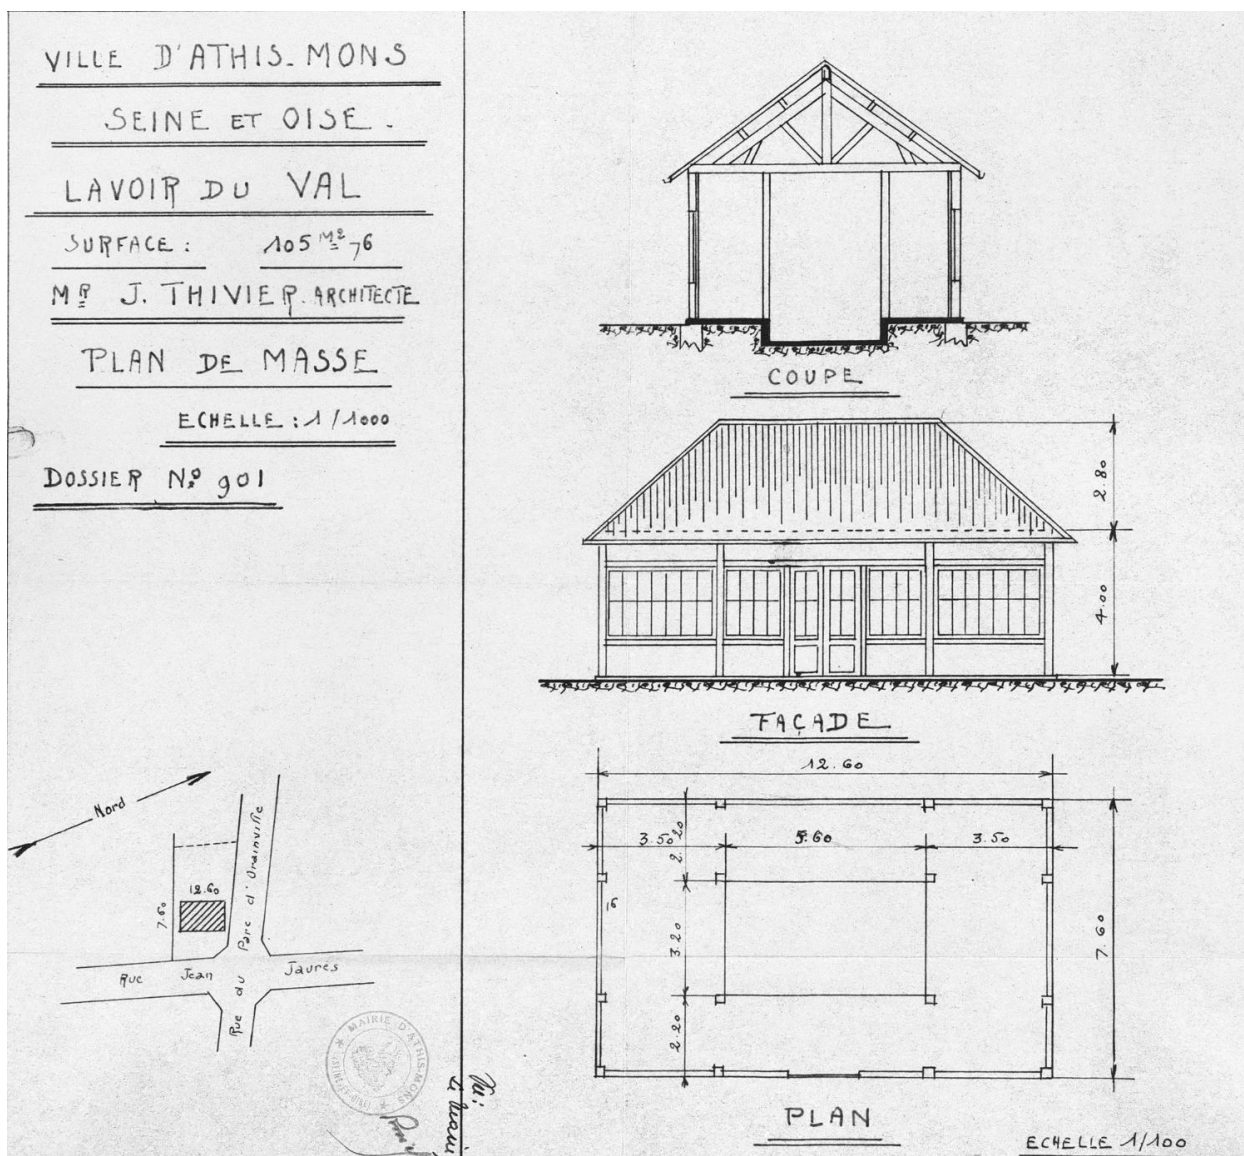 VILLE D'ATHIS-MONS
SEINE ET OISE.
LAVOIR DU VAL
SURFACE : 105 M² 76
MR J. THIVIER. ARCHITECTE
PLAN DE MASSE
ECHELLE : 1/1000
DOSSIER No 901
Nord
12.60
7.60
Rue du Parc d'Orainville
Rue Jean Jaurès
MAIRIE D'ATHIS-MONS
Vu:
COUPE
2.80
4.00
FAÇADE
12.60
3.50
5.60
3.50
2.20
3.20
2.20
16
7.60
PLAN
ECHELLE 1/100